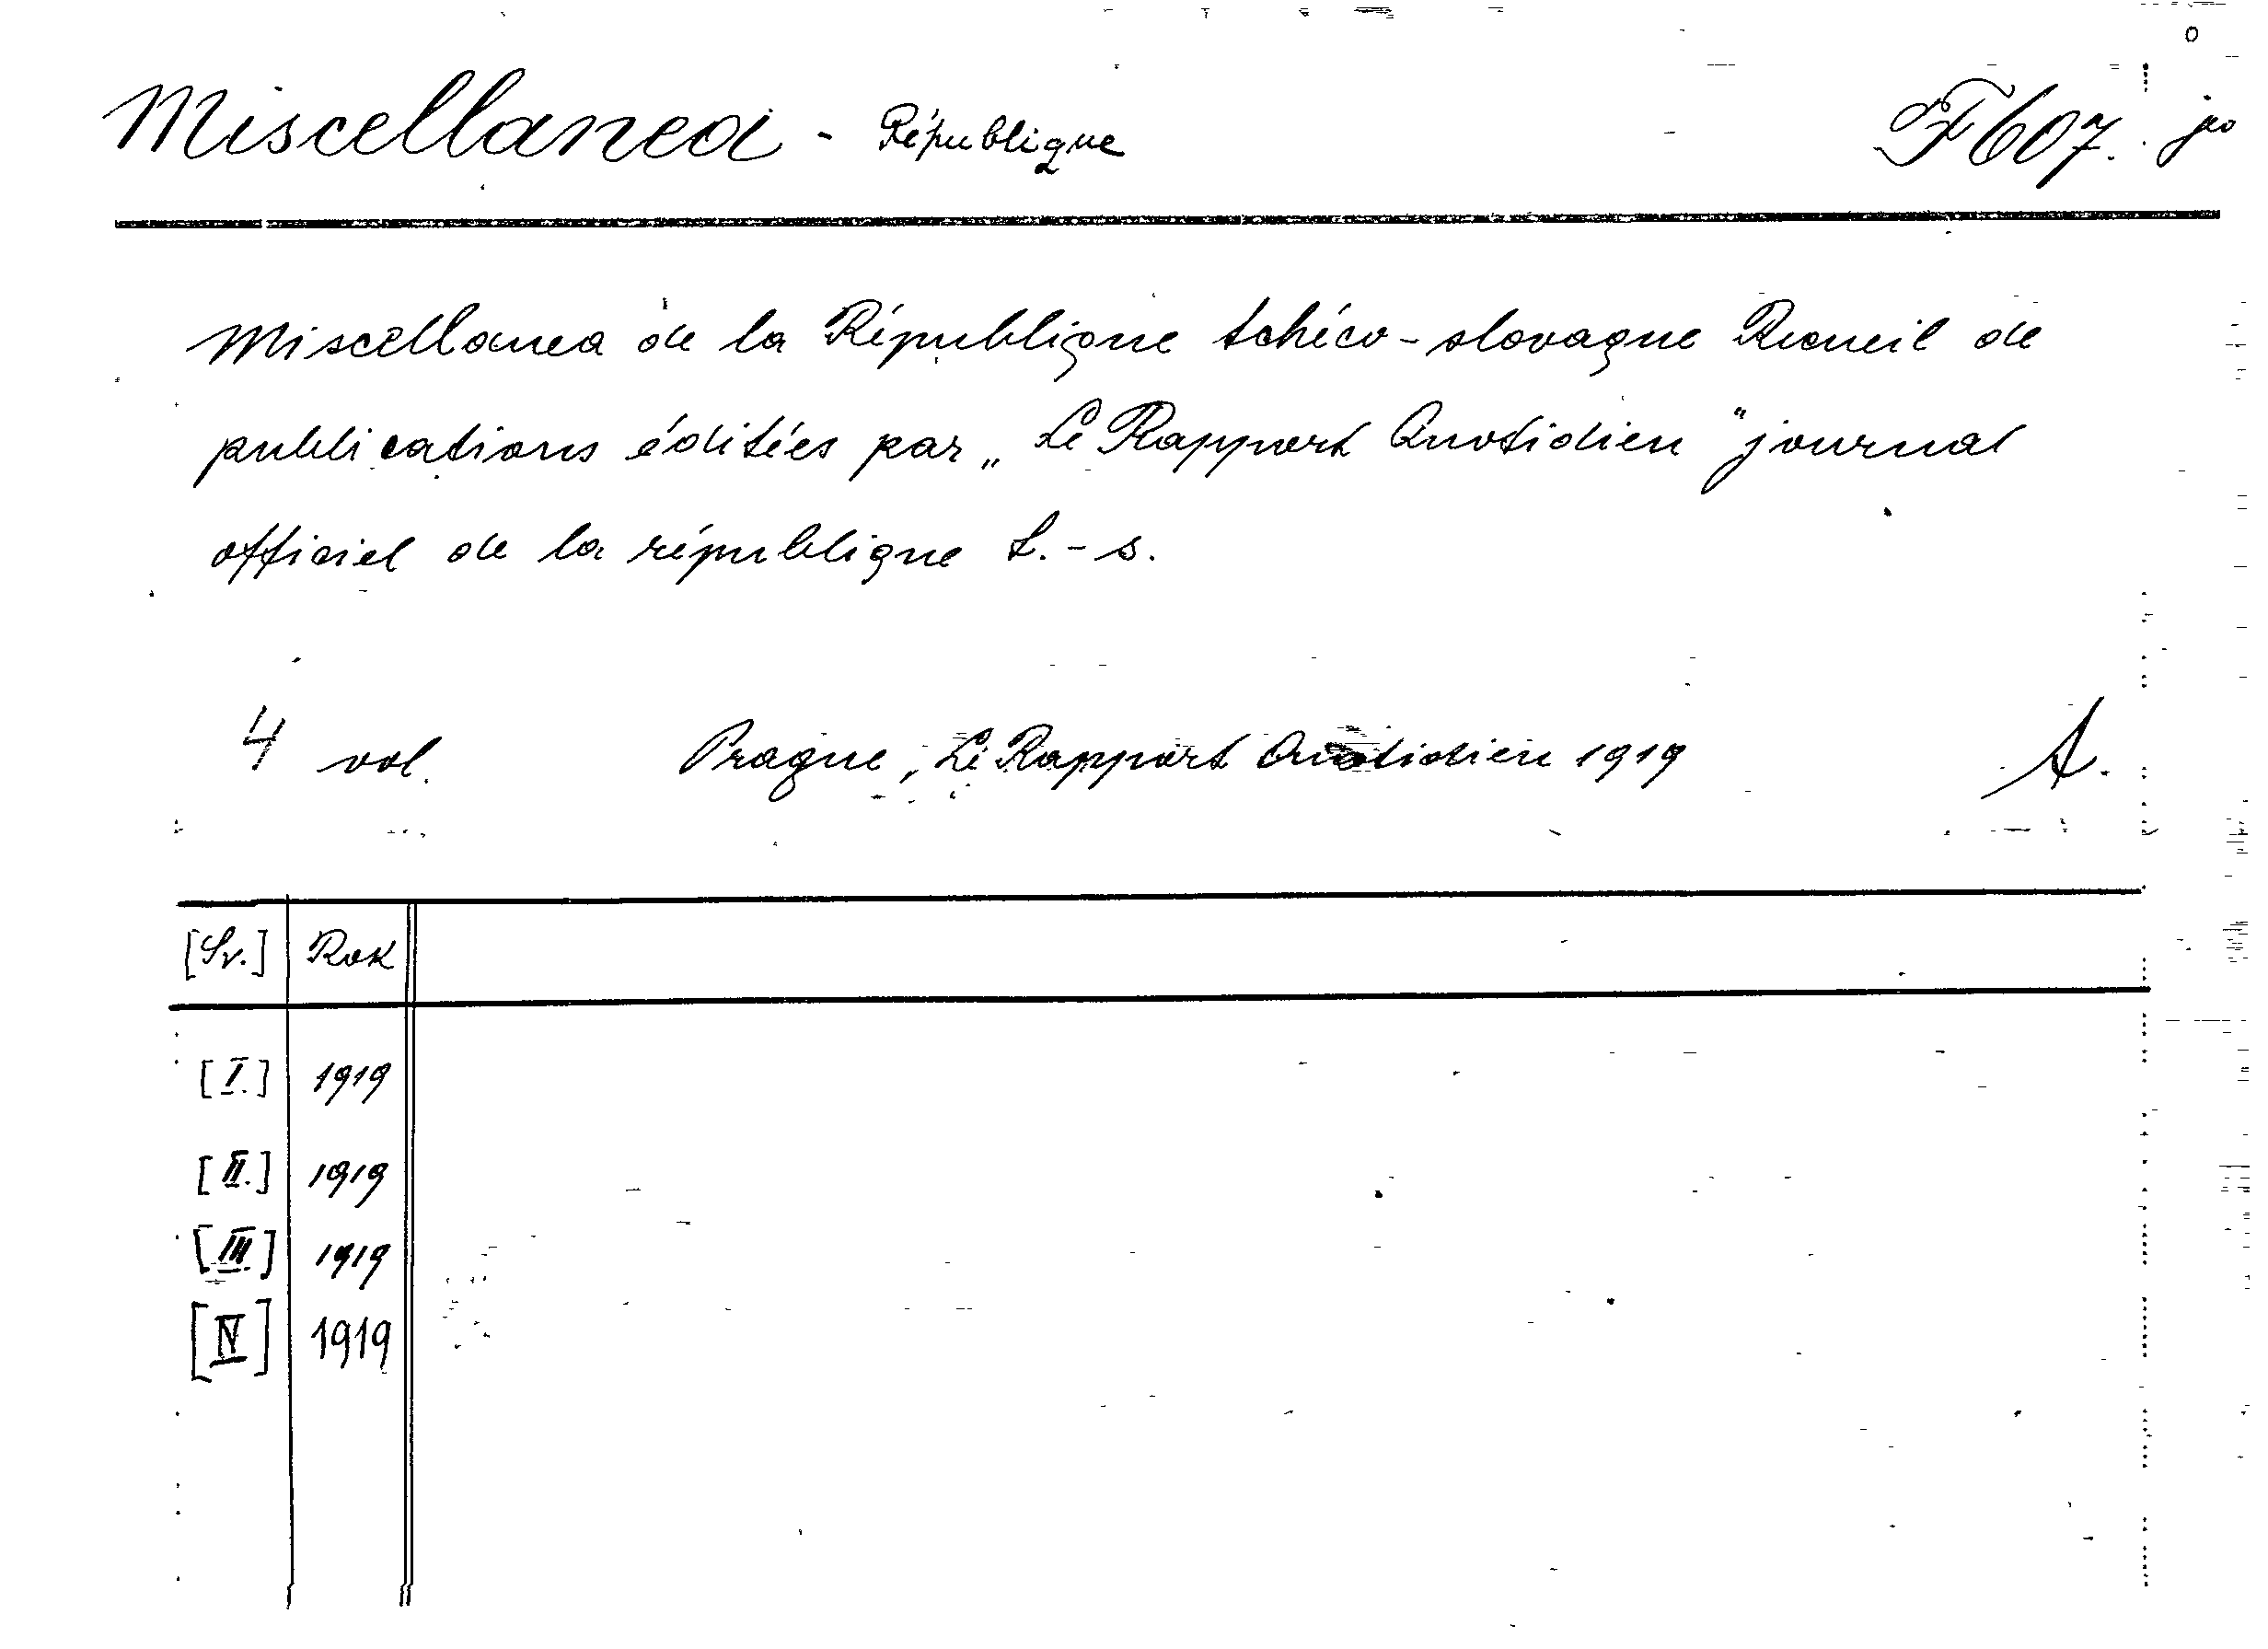 Miscellanea - République F 607.
Miscellanea de la République tchéco-slovaque Recueil de
publications éditées par „Le Rapport Quotidien" journal
officiel de la république t.-s.
4 vol. Prague, Le Rapport Quotidien 1919 A.
[Sv.] Rok
[I.] 1919
[II.] 1919
[III] 1919
[IV] 1919